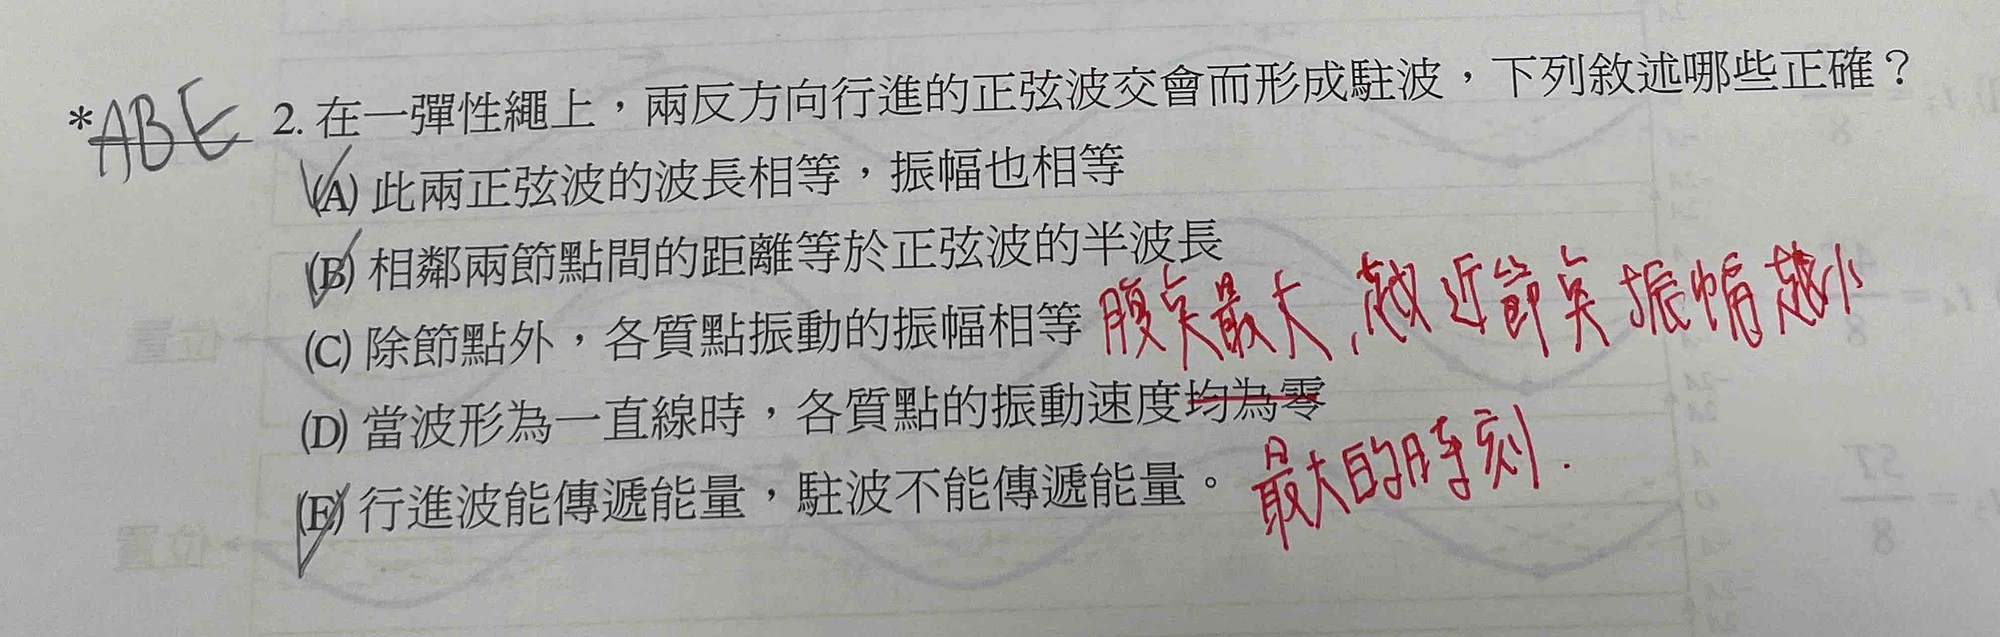 *ABE 2. 在一彈性繩上，兩反方向行進的正弦波交會而形成駐波，下列敘述哪些正確？
(A) 此兩正弦波的波長相等，振幅也相等
(B) 相鄰兩節點間的距離等於正弦波的半波長
(C) 除節點外，各質點振動的振幅相等 腹点最大，越近節点振幅越小
(D) 當波形為一直線時，各質點的振動速度均為零
最大的時刻.
(E) 行進波能傳遞能量，駐波不能傳遞能量。